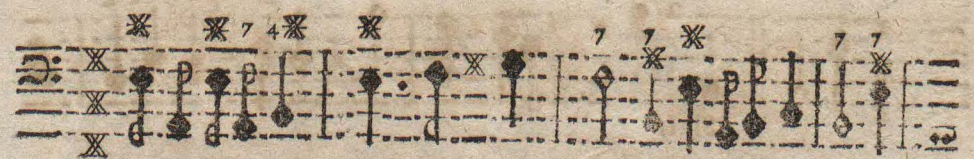 7 4
7 7 7 7